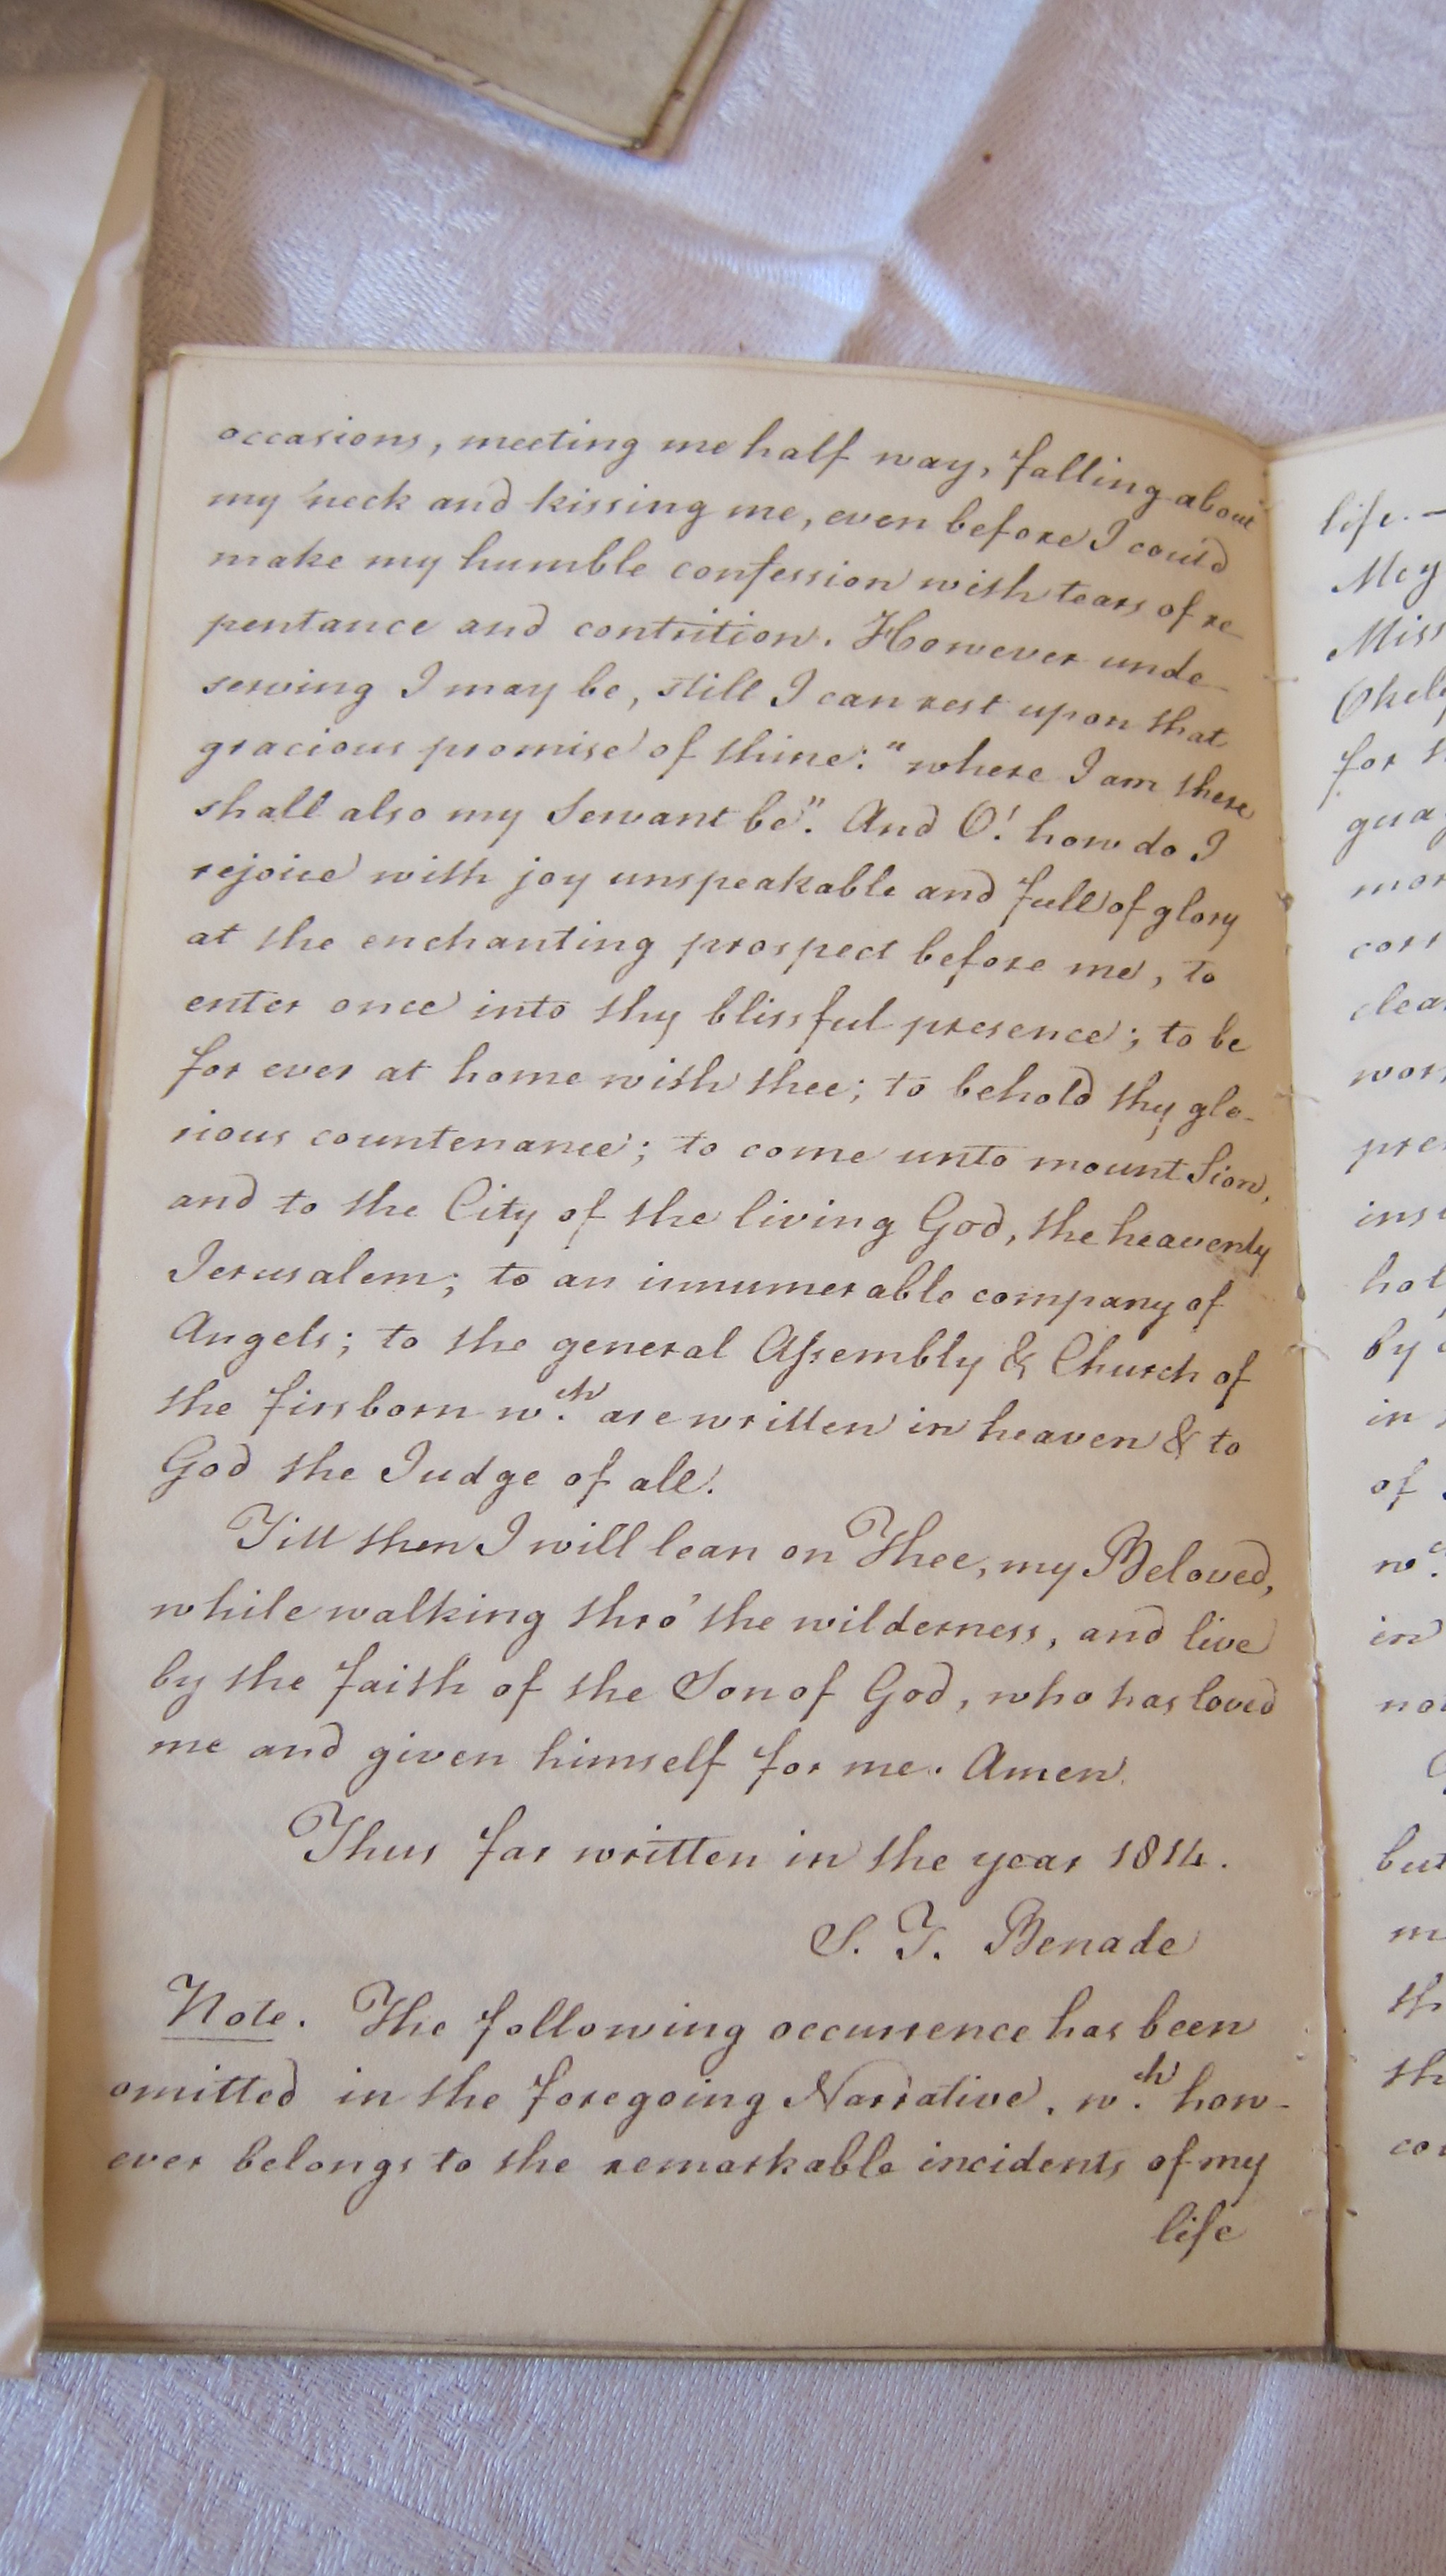 occasions, meeting me half way, falling about
my neck and kissing me, even before I could
make my humble confession with tears of re-
pentance and contrition. However unde-
serving I may be, still I can rest upon that
gracious promise of thine: "where I am there
shall also my Servant be". And O! how do I
rejoice with joy unspeakable and full of glory
at the enchanting prospect before me, to
enter once into thy blissful presence; to be
for ever at home with thee; to behold thy glo-
rious countenance; to come unto mount Sion,
and to the City of the living God, the heavenly
Jerusalem; to an innumerable company of
Angels; to the general Assembly & Church of
the firsborn w.ch are written in heaven & to
God the Judge of all.
Till then I will lean on Thee, my Beloved,
while walking thro' the wilderness, and live
by the faith of the Son of God, who has loved
me and given himself for me. Amen.
Thus far written in the year 1814.
S. T. Benade
Note. The following occurrence has been
omitted in the foregoing Narrative, w.ch how-
ever belongs to the remarkable incidents of my
life
life. —
Miss
for
by
in
of
in
but